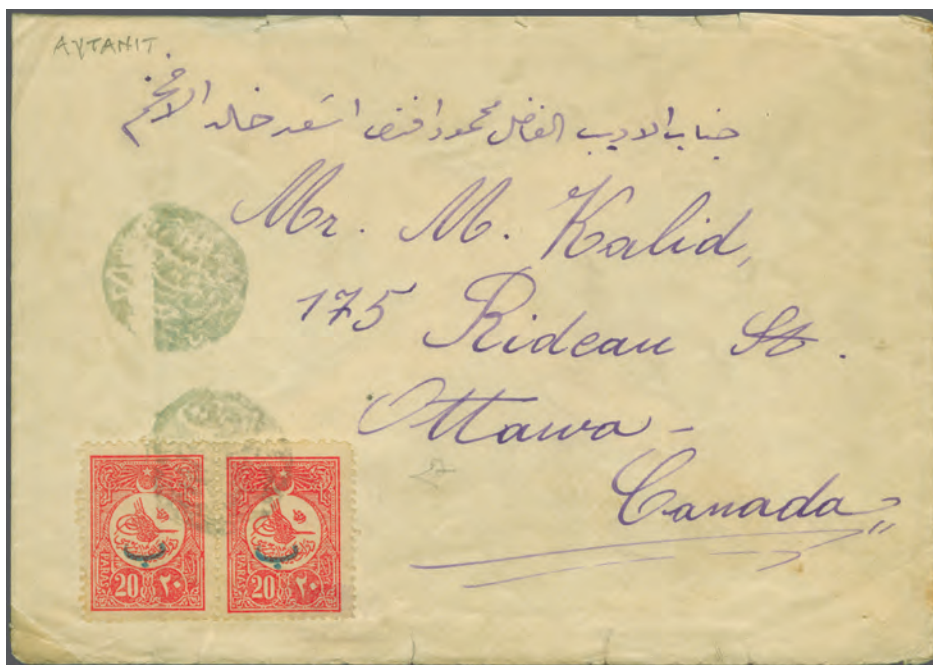 AYTANIT.
جناب الاديب الفاضل محمود افندي اسعد خالد الافخم
Mr. M. Kalid,
175 Rideau St.
Ottawa -
Canada
ب ب
20 ٢٠ 20 ٢٠